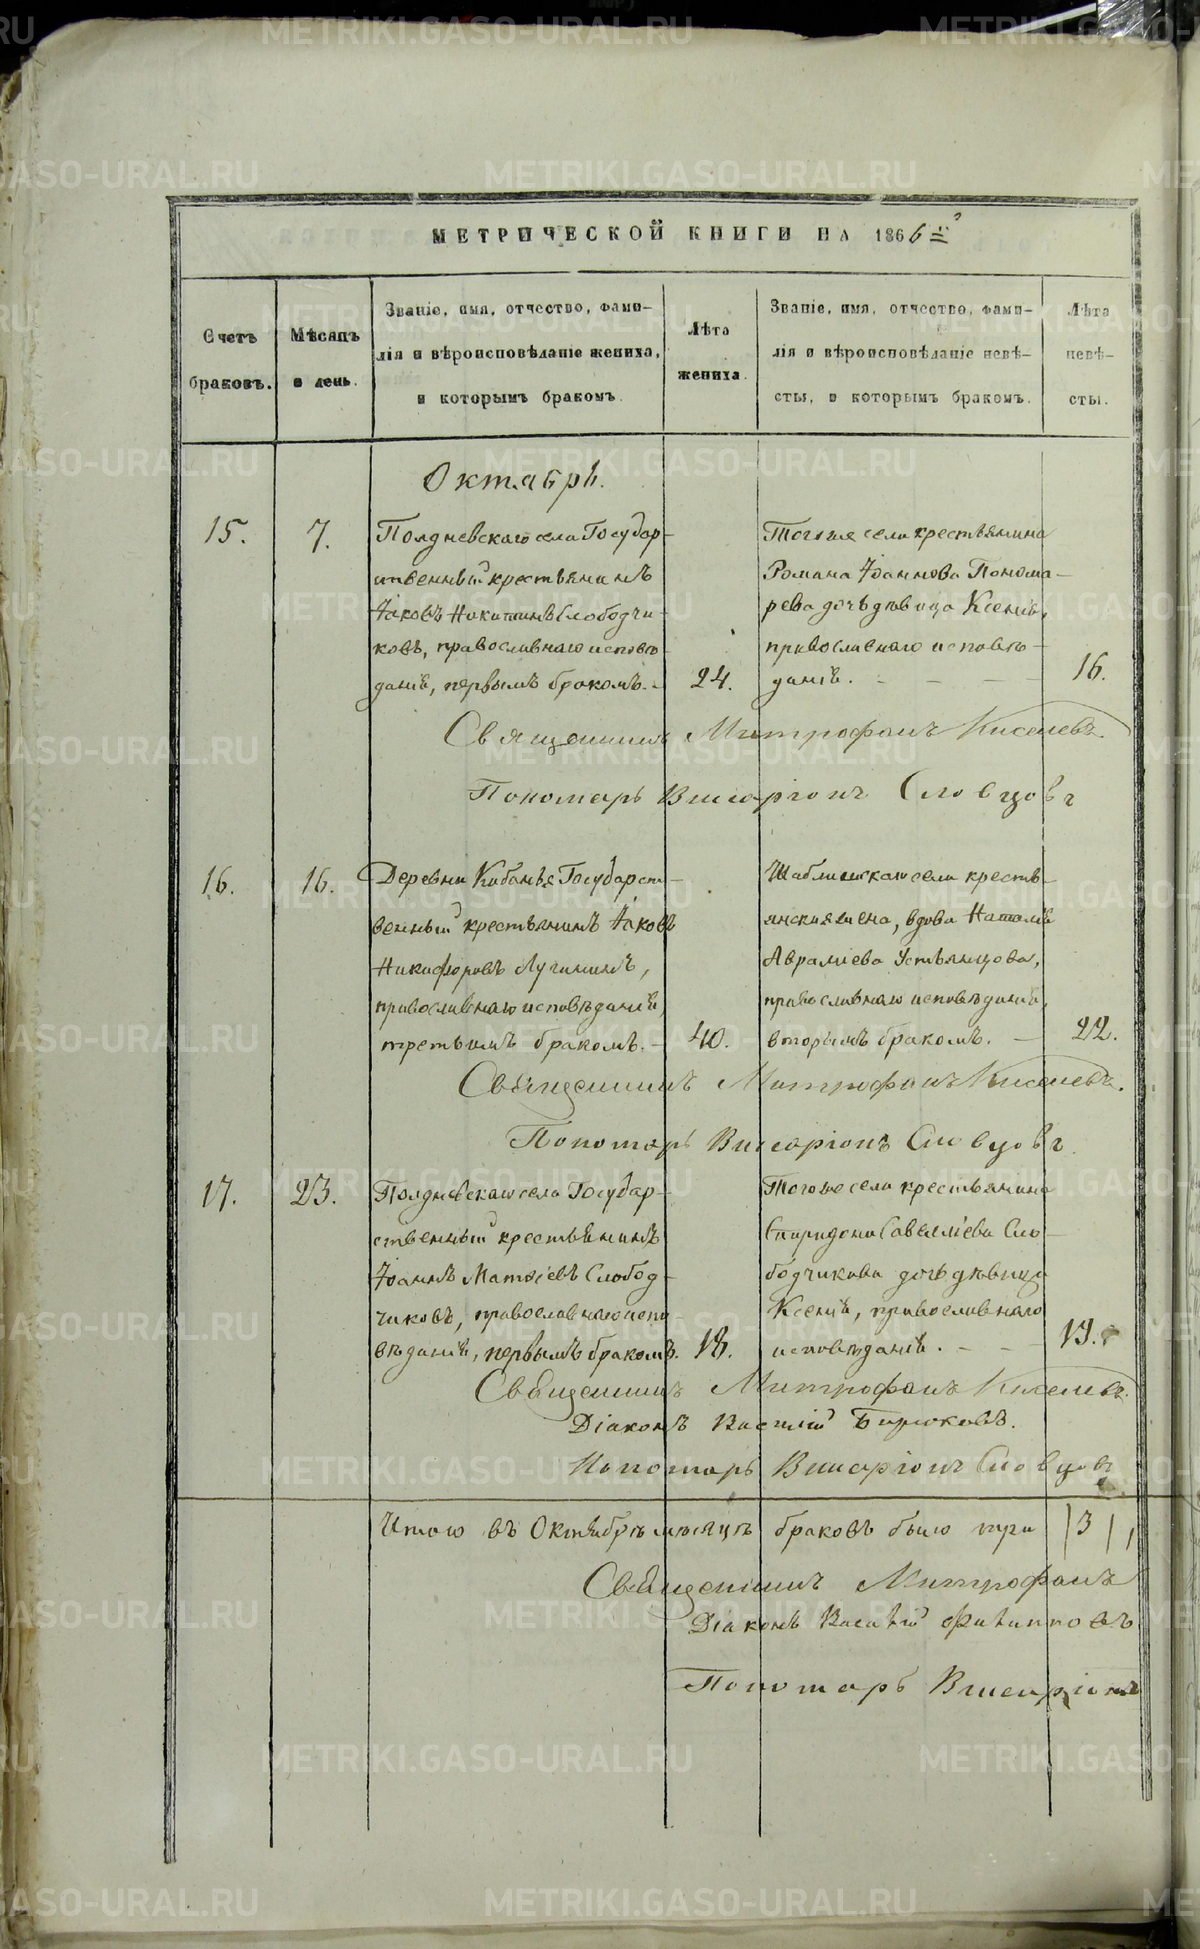 МЕТРИЧЕСКОЙ КНИГИ НА 1866 й
Счетъ браковъ.
Мѣсяцъ и день.
Званіе, имя, отчество, фами-
лія и вѣроисповѣданіе жениха,
и которымъ бракомъ.
Лѣта жениха.
Званіе, имя, отчество, фами-
лія и вѣроисповѣданіе невѣ-
сты, и которымъ бракомъ.
Лѣта невѣ-
сты.
Октябрь.
15. 7.
Полдневскаго села Государ-
ственный крестьянинъ
Іаковъ Никитинъ Слободчи-
ковъ, православнаго исповѣ-
данія, первымъ бракомъ. 24.
Тогоже села крестьянина
Романа Іоаннова Понома-
рева дочь дѣвица Ксенія,
православнаго исповѣ-
данія. 16.
Священникъ Митрофанъ Киселевъ.
Пономарь Висаріонъ Словцовъ
16. 16.
Деревни Кабанья Государст-
венный крестьянинъ Іаковъ
Никифоровъ Лучининъ,
православнаго исповѣданія,
третьимъ бракомъ. 40.
Шаблишскаго села кресть-
янская жена, вдова Наталія
Авраміева Устьянцова,
православнаго исповѣданія,
вторымъ бракомъ. 22.
Священникъ Митрофанъ Киселевъ.
Пономарь Висаріонъ Словцовъ
17. 23.
Полдневскаго села Государ-
ственный крестьянинъ
Іоаннъ Матѳіевъ Слобод-
чиковъ, православнаго испо-
вѣданія, первымъ бракомъ. 18.
Тогоже села крестьянина
Спиридона Савелліева Сло-
бодчикова дочь дѣвица
Ксенія, православнаго
исповѣданія. 19.
Священникъ Митрофанъ Киселевъ.
Діаконъ Василій Бирюковъ.
Пономарь Висаріонъ Словцовъ
Итого въ Октябрѣ мѣсяцѣ браковъ было три /3/,
Священникъ Митрофанъ
Діаконъ Василій Филипповъ
Пономарь Висаріонъ
METRIKI.GASO-URAL.RU